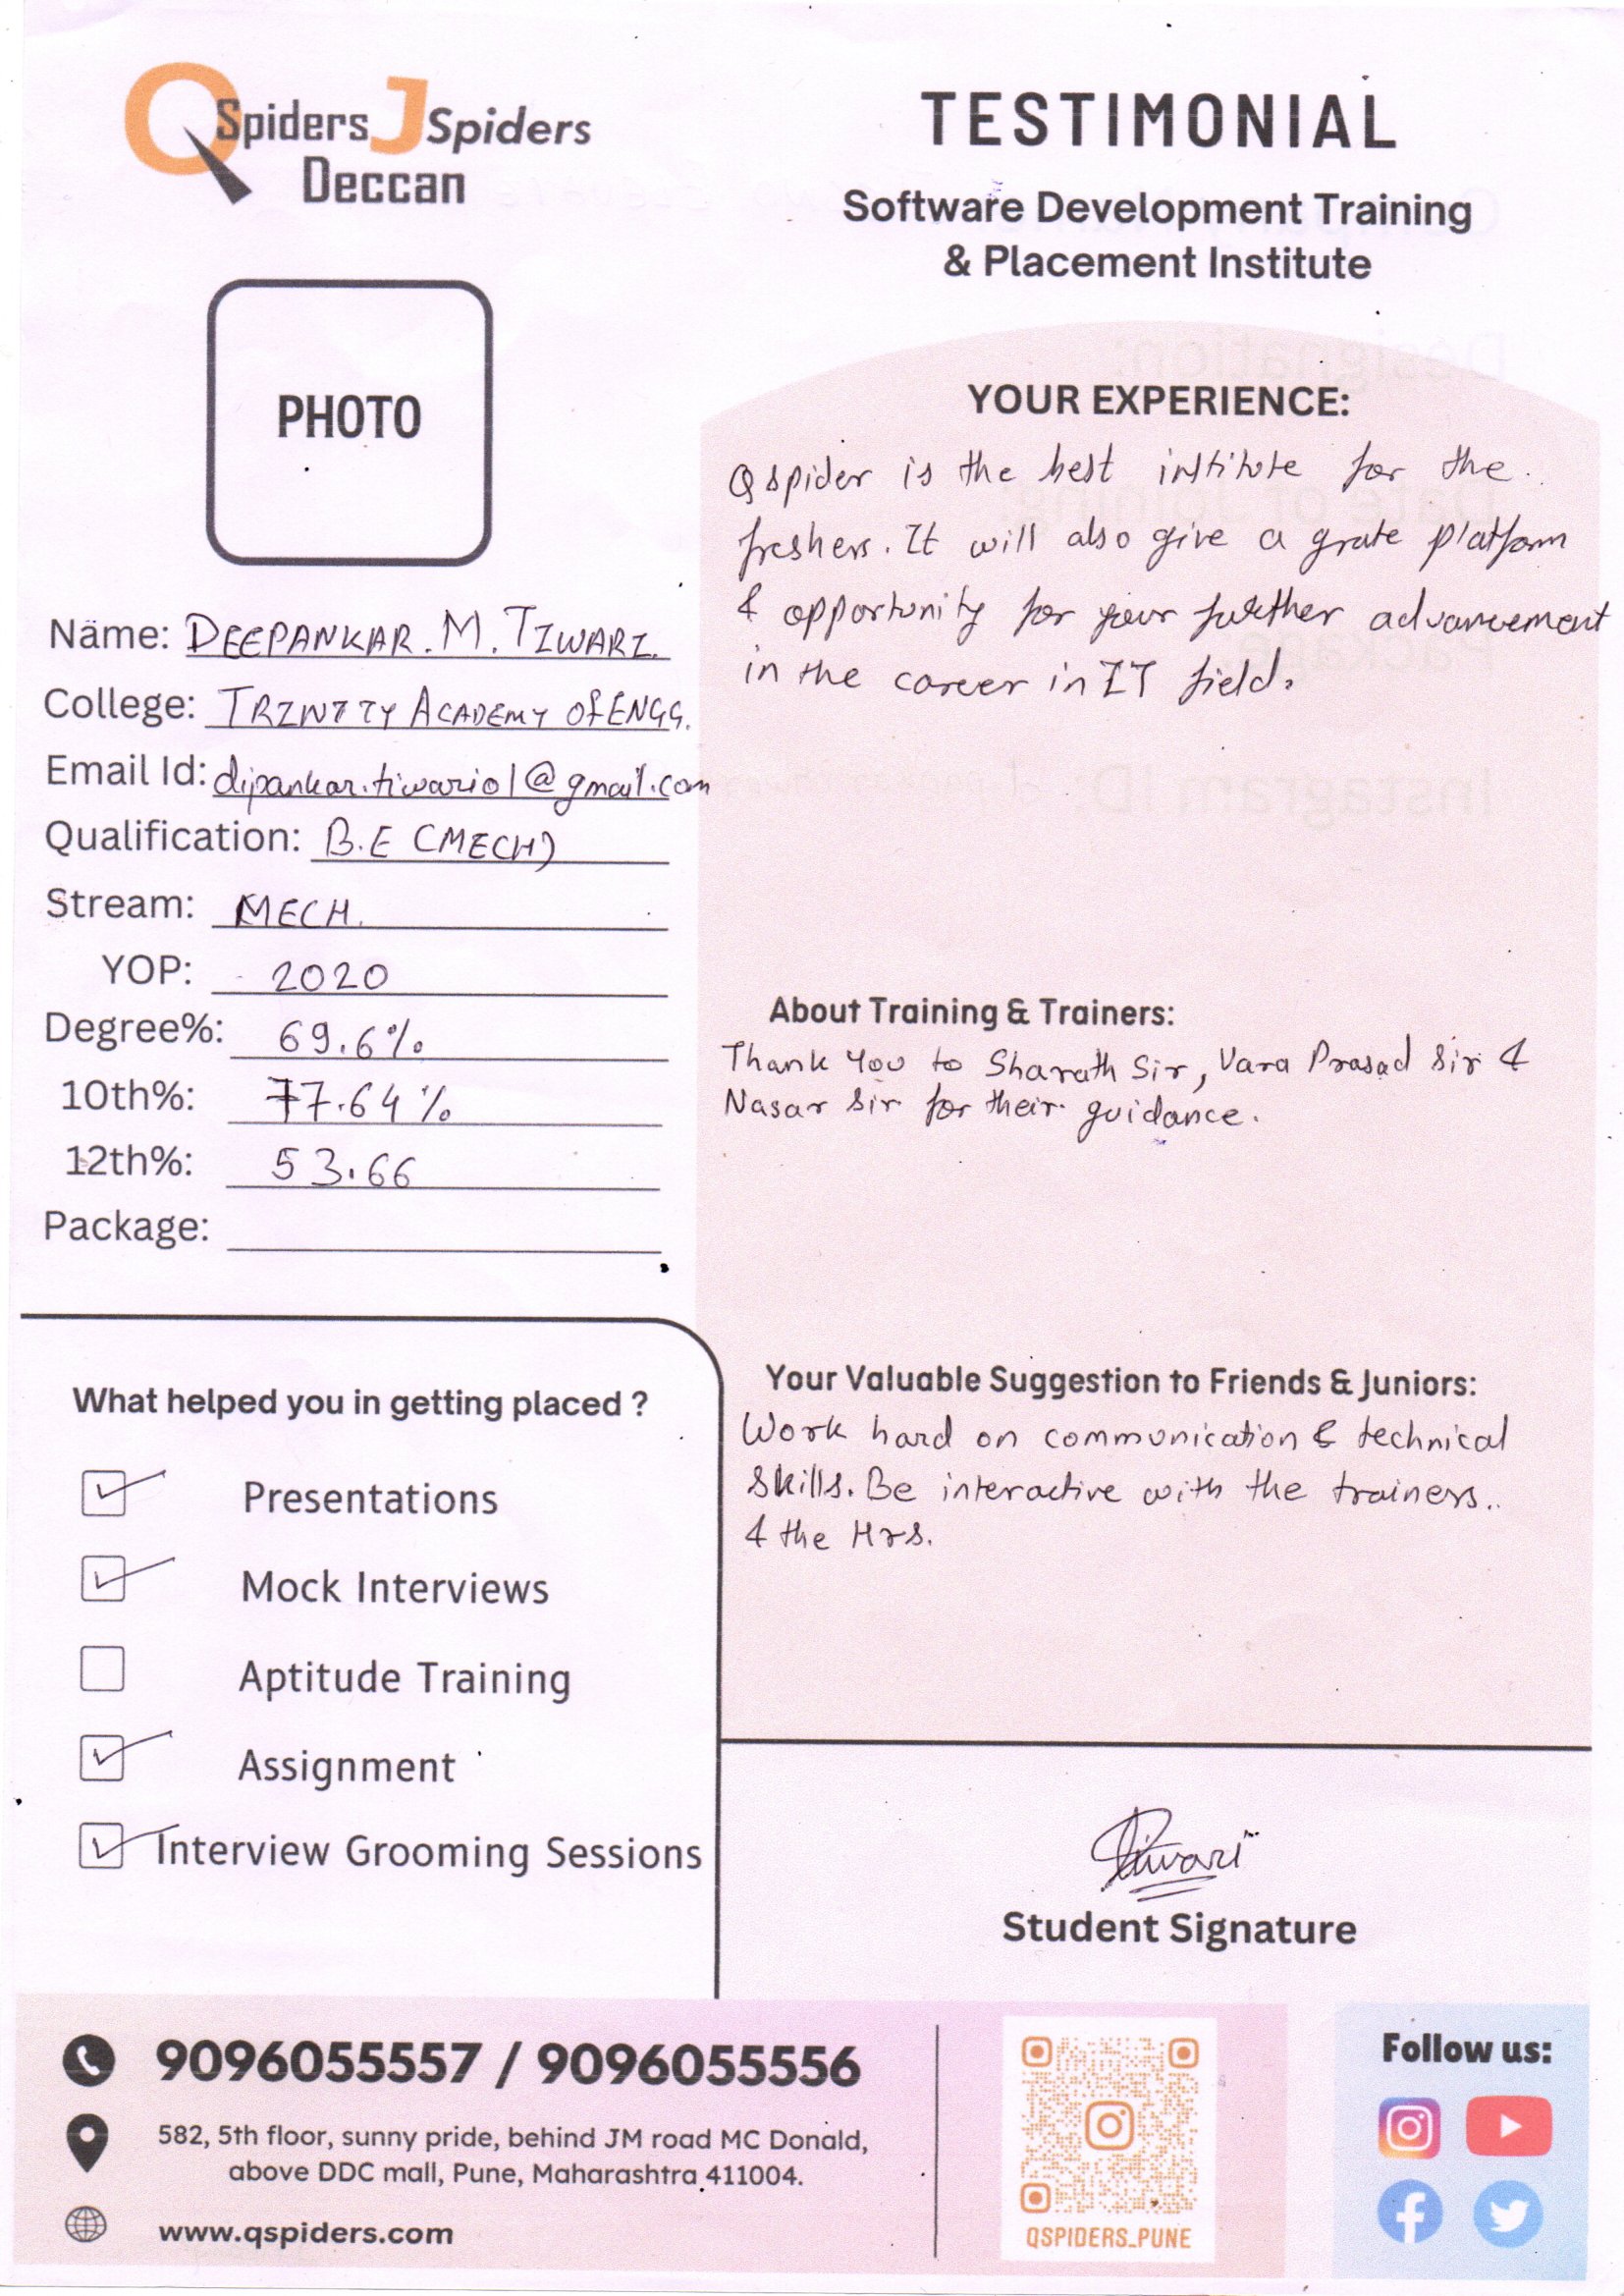 QSpiders JSpiders
Deccan
TESTIMONIAL
Software Development Training
& Placement Institute
PHOTO
Name: DEEPANKAR. M. TIWARI.
College: TRINITY ACADEMY OF ENGG.
Email Id: dipankar.tiwari01@gmail.com
Qualification: B.E (MECH)
Stream: MECH.
YOP: 2020
Degree%: 69.6%
10th%: 77.64%
12th%: 53.66
Package:
What helped you in getting placed ?
Presentations
Mock Interviews
Aptitude Training
Assignment
Interview Grooming Sessions
YOUR EXPERIENCE:
Qspider is the best institute for the
freshers. It will also give a grate platform
& opportunity for your further advancement
in the career in IT field.
About Training & Trainers:
Thank You to Sharath Sir, Vara Prasad Sir &
Nasar Sir for their guidance.
Your Valuable Suggestion to Friends & Juniors:
Work hard on communication & technical
skills. Be interactive with the trainers..
& the Hrs.
Tiwari
Student Signature
9096055557 / 9096055556
582, 5th floor, sunny pride, behind JM road MC Donald,
above DDC mall, Pune, Maharashtra 411004.
www.qspiders.com
QSPIDERS_PUNE
Follow us: